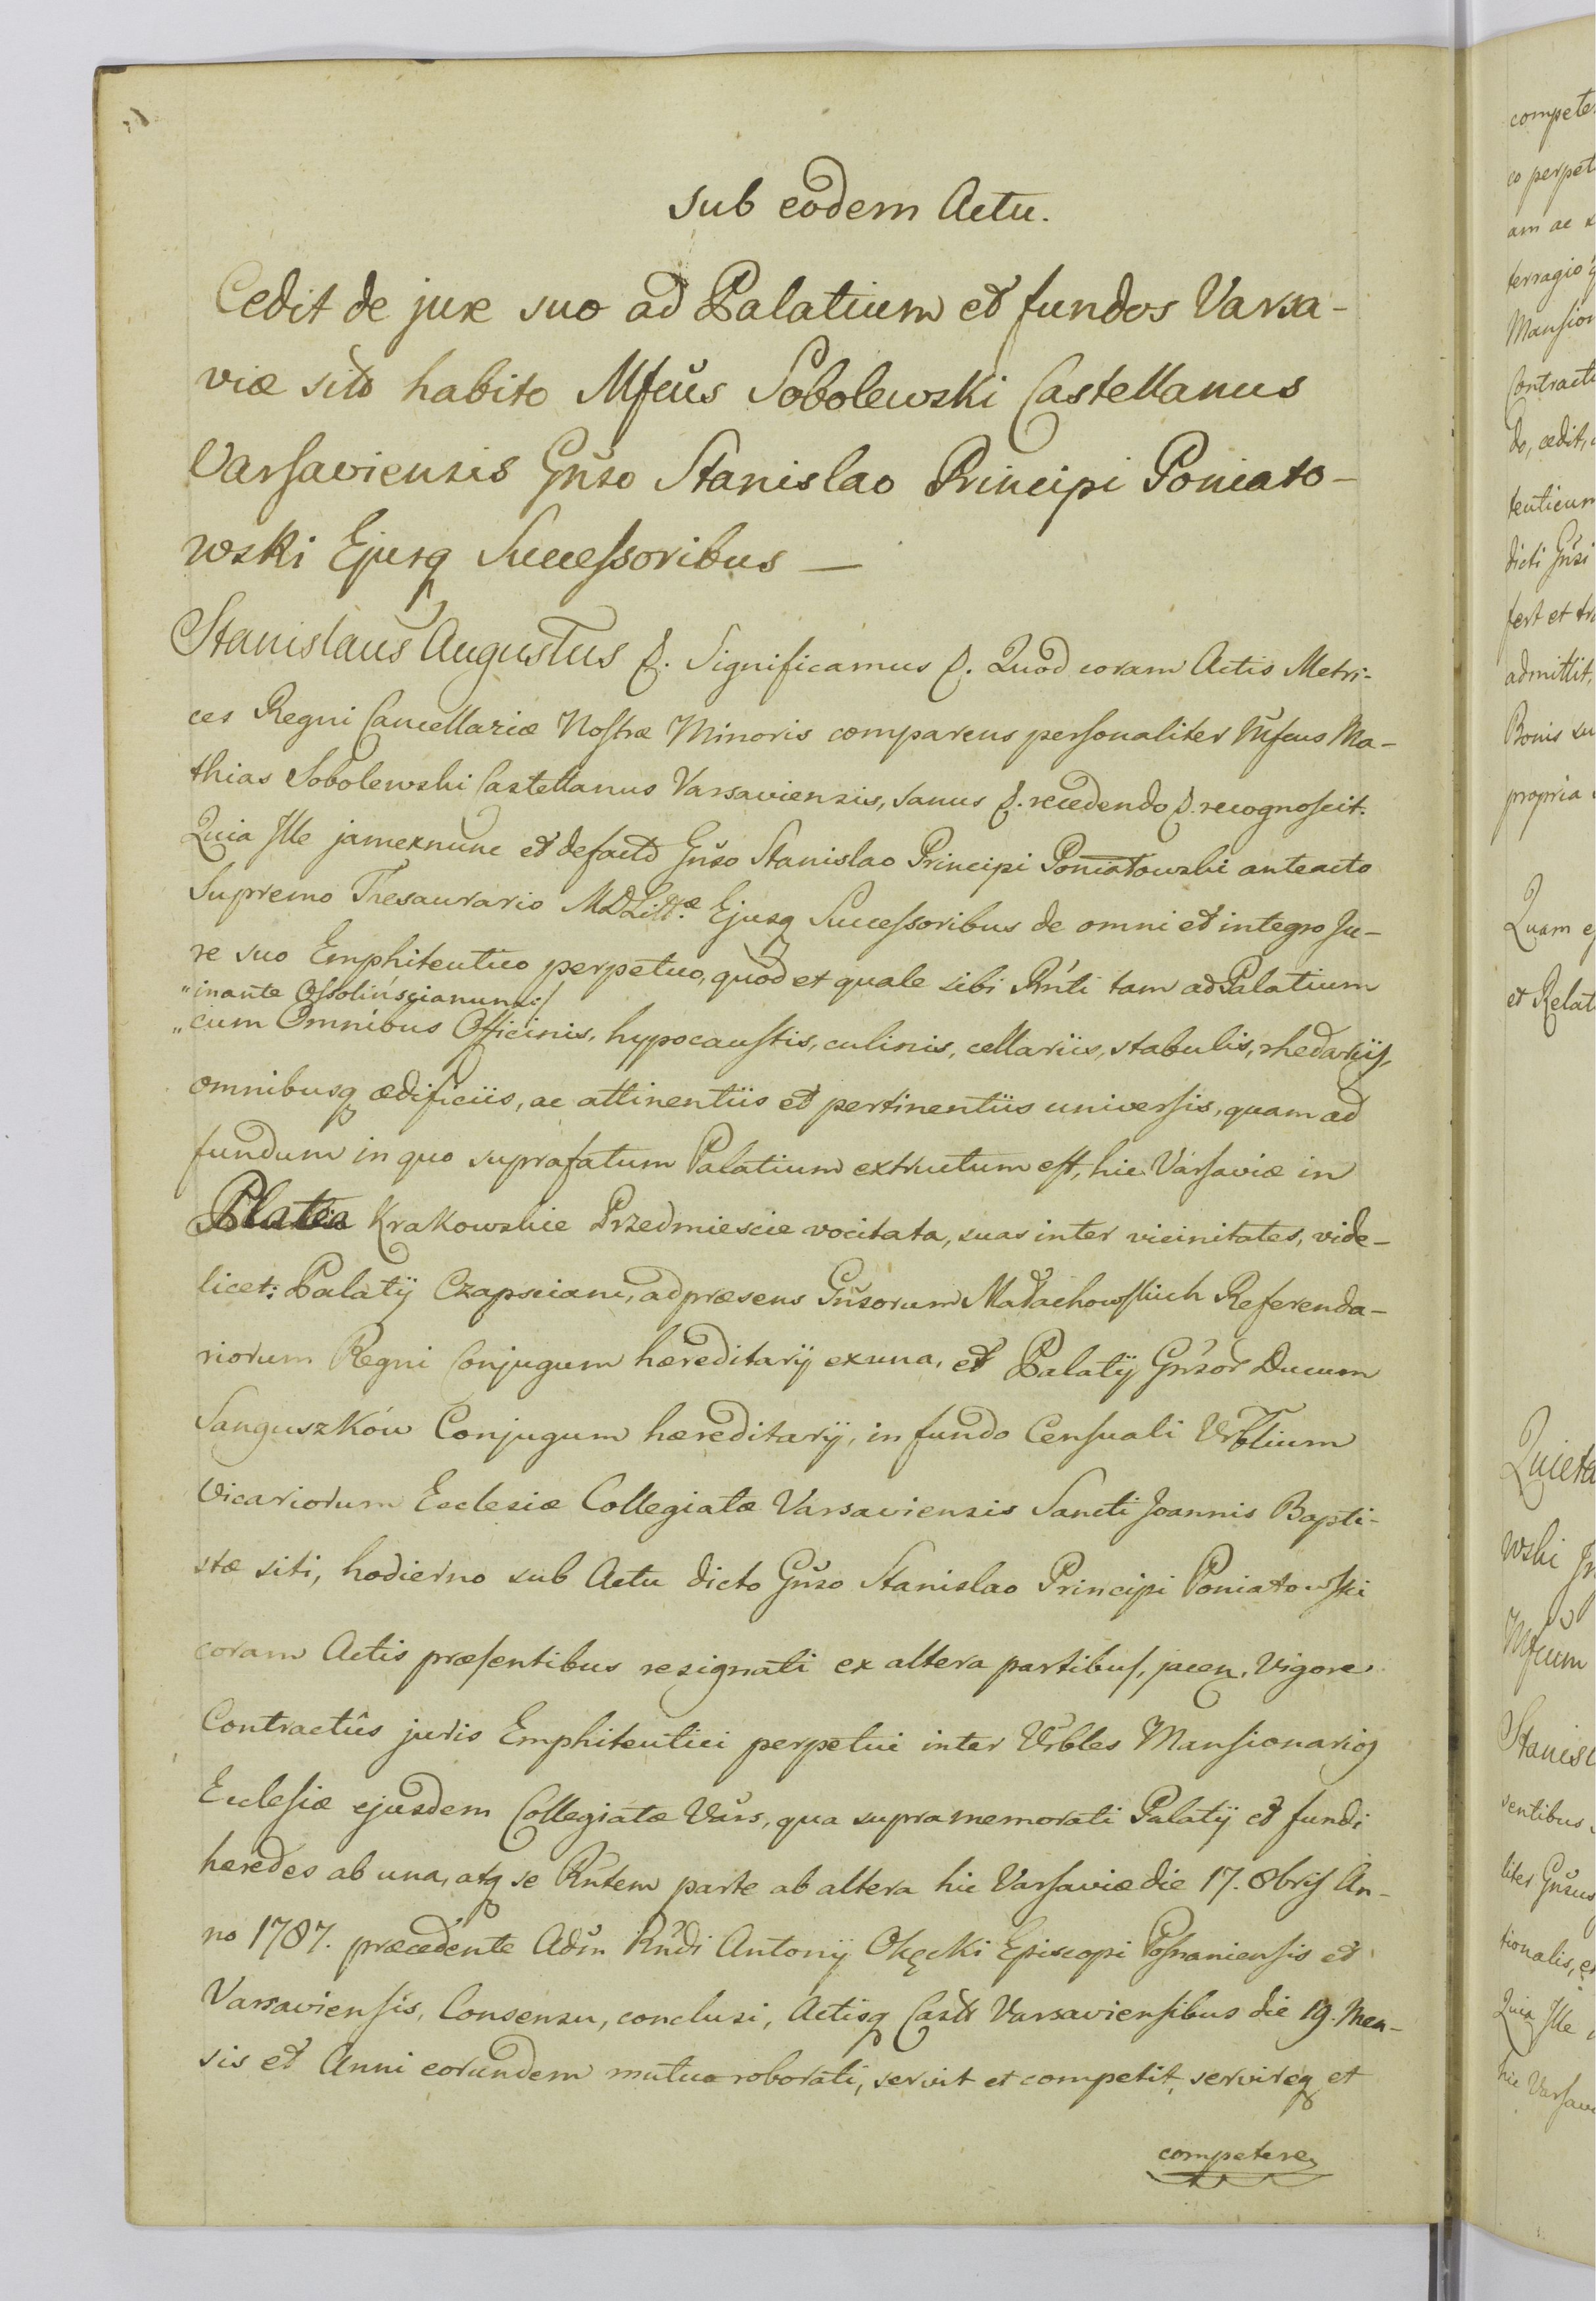 sub eodem Actu.
Cedit de jure suo ad Palatium et fundos Varsa-
viæ sito habito Mfcus Sobolewski Castellanus
Varsaviensis Gnso Stanislao Principi Poniato-
wski Ejusq Successoribus —
Stanislaus Augustus &. Significamus &. Quod coram Actis Metri-
ces Regni Cancellariæ Nostræ Minoris comparens personaliter Mfcus Ma-
thias Sobolewski Castellanus Varsaviensis, sanus &. recedendo &. recognoscit.
Quia Ille jamexnunc et defacto Gnso Stanislao Principi Poniatowski anteacto
Supremo Thesaurario MDLittæ Ejusq Successoribus de omni et integro Ju-
re suo Emphiteutico perpetuo, quod et quale sibi Rnti tam ad Palatium
"inante Ossolińscianum:/
"cum Omnibus Officinis, hypocaustis, culinis, cellariis, stabulis, rhedariis,
omnibusq ædificiis, ac attinentiis et pertinentiis universis, quam ad
fundum in quo suprafatum Palatium extructum est, hic Varsaviæ in
Platea Krakowskie Przedmiescie vocitata, suas inter vicinitates, vide-
licet: Palatÿ Czapsciani, adpræsens Gnsorum Małachowskich Referenda-
riorum Regni Conjugum hæreditarÿ exuna, et Palatÿ Gnsor Ducum
Sanguszków Conjugum hæreditarÿ, in fundo Censuali Vrblium
Vicariorum Ecclesiæ Collegiatæ Varsaviensis Sancti Joannis Bapti-
stæ siti, hodierno sub Actu dicto Gnso Stanislao Principi Poniatowski
coram Actis præsentibus resignati ex altera partibus, jacen. Vigore
Contractûs juris Emphiteutici perpetui inter Vrbles Mansionarios
Ecclesiæ ejusdem Collegiatæ Vars, qua supramemorati Palatÿ et fundi
hæredes ab una, atq se Rntem parte ab altera hic Varsaviæ die 17. 8bris An-
no 1787. præcedente Adm Rndi Antonÿ Okęcki Episcopi Posnaniensis et
Varsaviensis, Consensu, conclusi, Actisq Castr Varsaviensibus die 19. Men-
sis et Anni eorundem mutuo roborati, servit et competit, servireq et
competere
compete
co perpet
am ac
terragio
Mansion
Contract
do, cedit,
tenticum
dicti Gnsi
fert et tr
admittit,
Bonis su
propria
Quam
et Relat
Quieta
wski
Mfcum
Stanisl
sentibus
liter Gnsus
tionalis, et
Quia Ille
hic Varsav